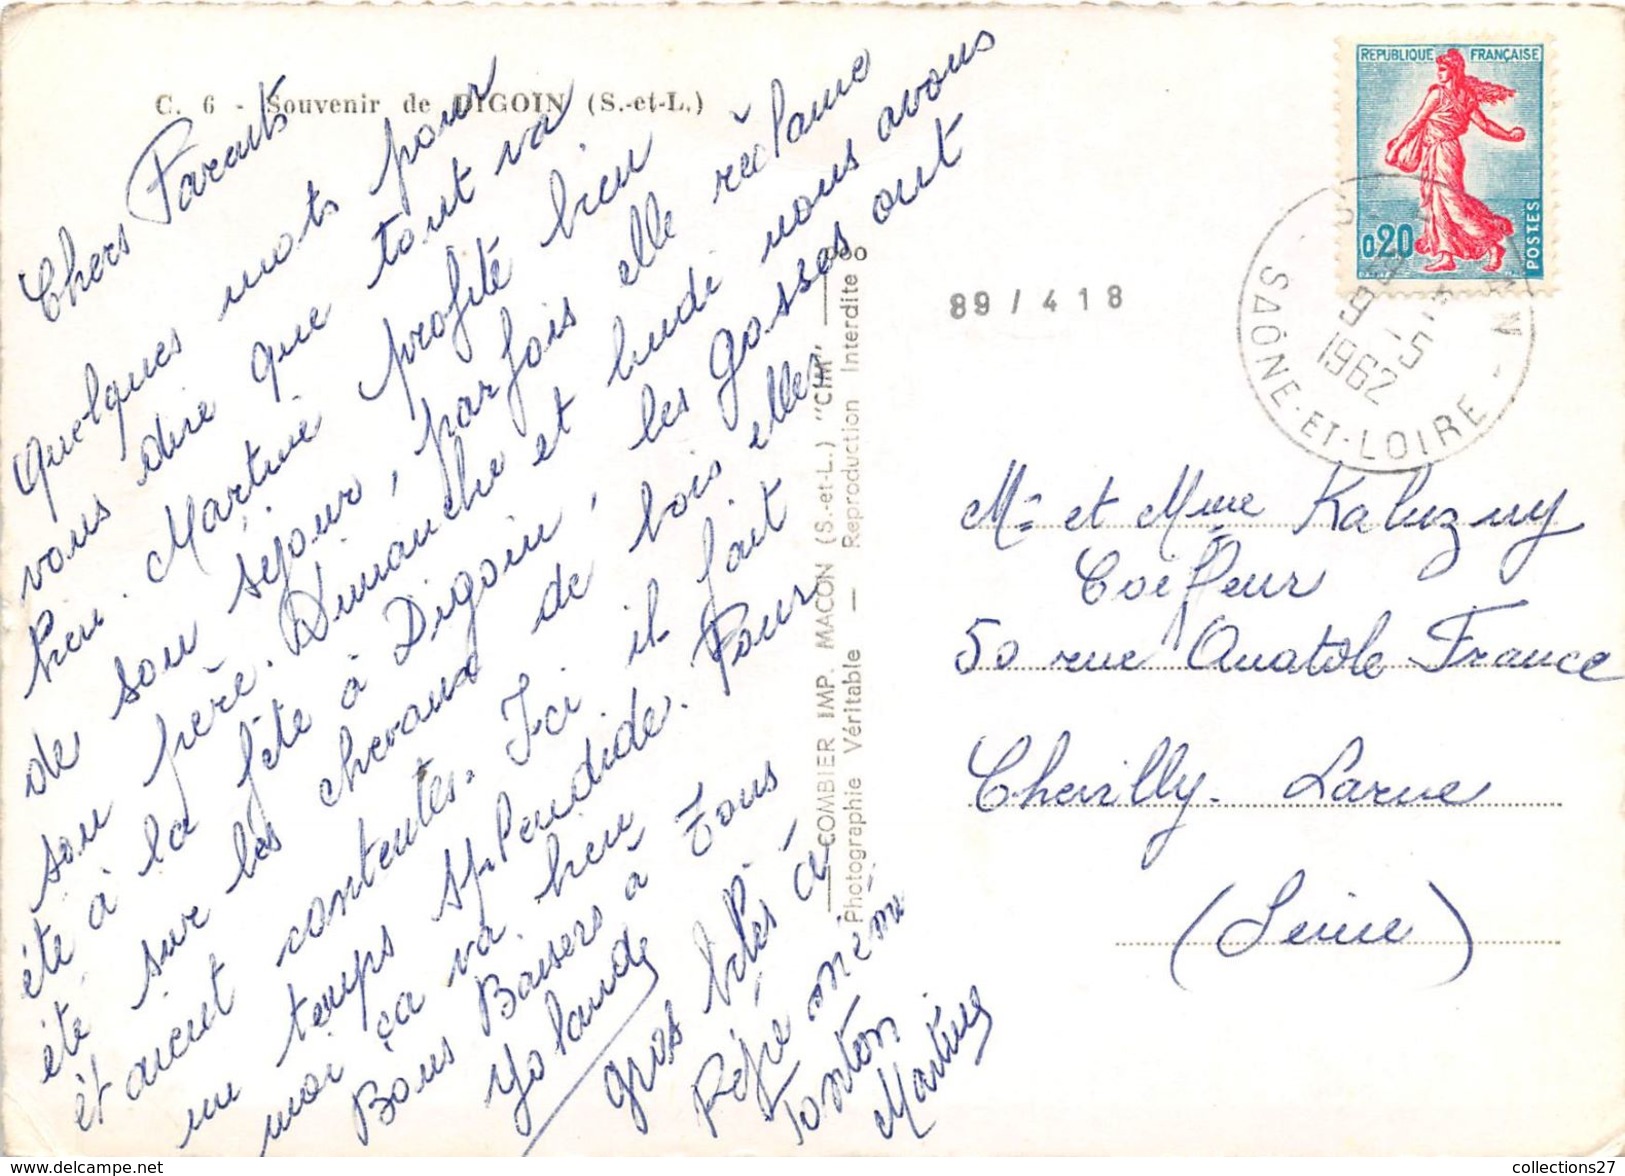 C. 6 - Souvenir de DIGOIN (S.-et-L.)
Chers Parents
Quelques mots pour
vous dire que tout va
bien. Martine profite bien
de son séjour, parfois elle réclame
son père. Dimanche et lundi nous avons
été à la fête à Digoin, les gosses ont
été sur les chevaux de bois elles
étaient contentes. Ici il fait
un temps splendide. Pour
moi ça va bien
Bons Baisers à Tous
Yolande
gros bibis à
Pépé mémé
Tonton
Martine
COMBIER IMP. MACON (S.-et-L.) "CIM"
Photographie Véritable — Reproduction Interdite
89/418
REPUBLIQUE FRANÇAISE
0,20
POSTES
1962
SAÔNE-ET-LOIRE
Mr et Mme Kaluzny
Coiffeur
50 rue Anatole France
Chevilly-Larue
(Seine)
collections27